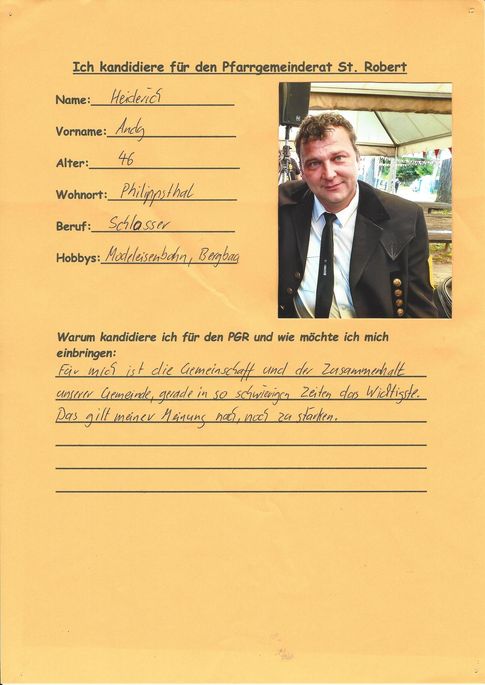 Ich kandidiere für den Pfarrgemeinderat St. Robert
Name: Heiderich
Vorname: Andy
Alter: 46
Wohnort: Philippsthal
Beruf: Schlosser
Hobbys: Modeleisenbahn, Bergbau
Warum kandidiere ich für den PGR und wie möchte ich mich
einbringen:
Für mich ist die Gemeinschaft und der Zusammenhalt
unserer Gemeinde, gerade in so schwierigen Zeiten das Wichtigste.
Das gilt meiner Meinung nach, noch zu stärken.